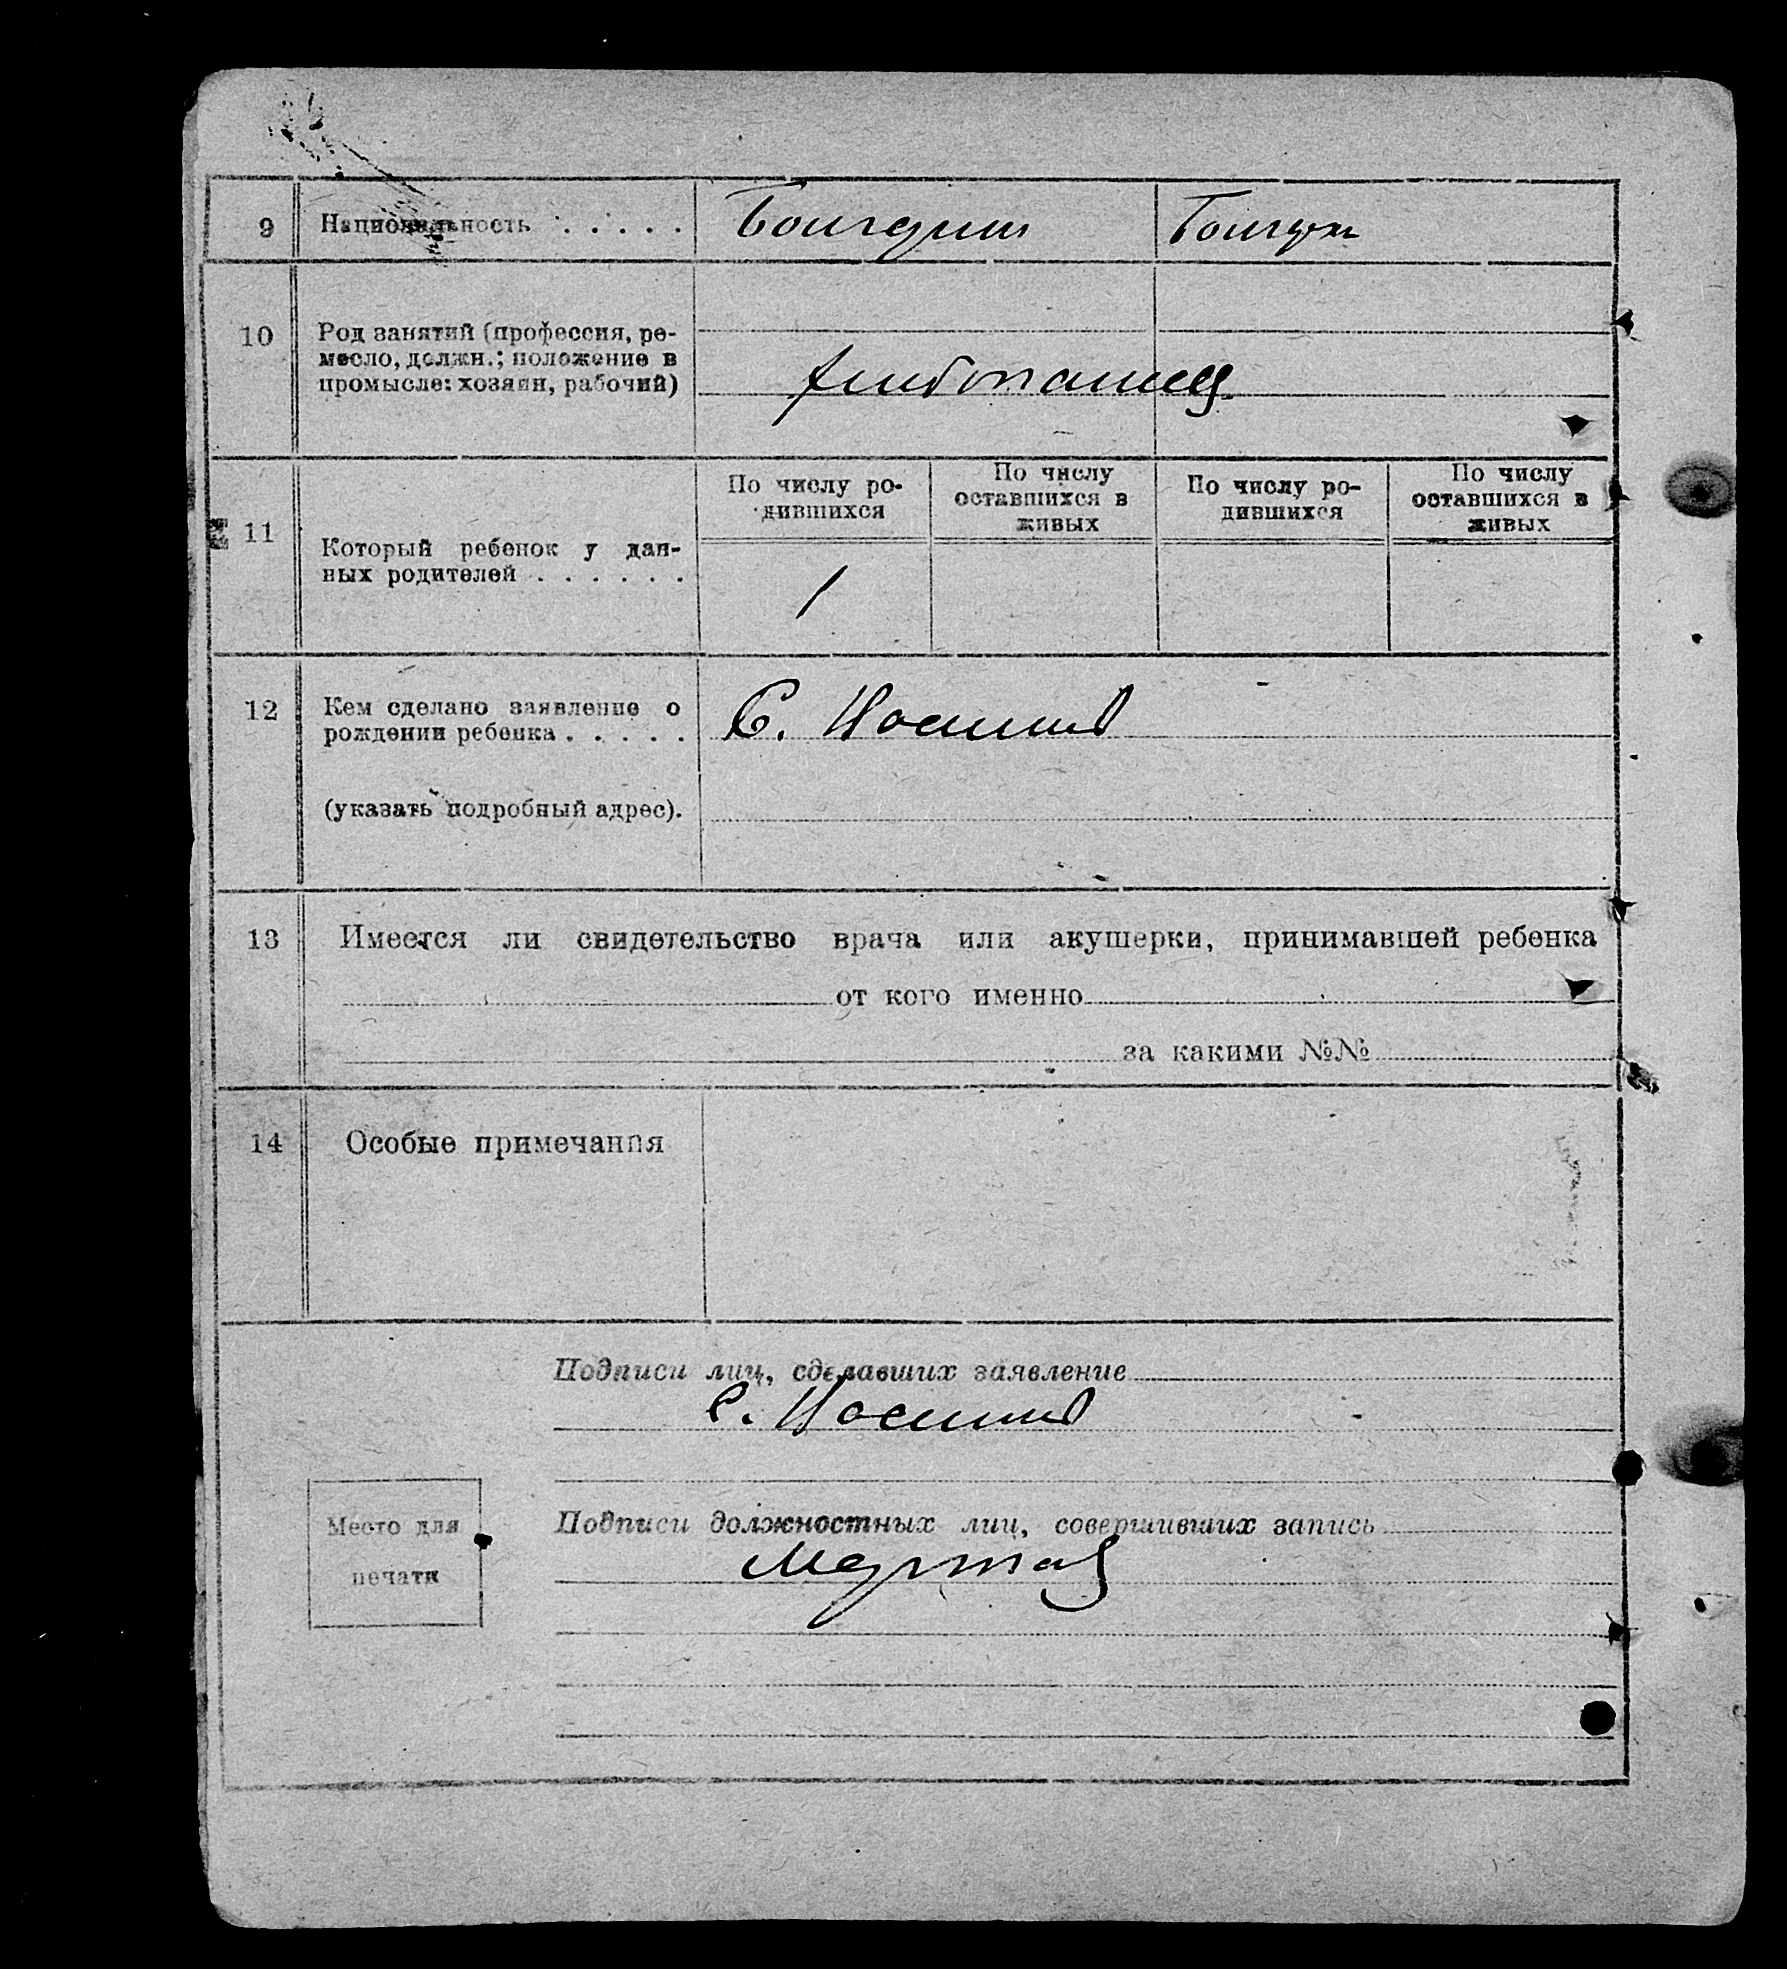 9 Национальность . . . . .
10 Род занятий (профессия, ре-
месло, должн.; положение в
промысле: хозяин, рабочий)
11 Который ребенок у дан-
ных родителей . . . . . .
По числу ро-
дившихся
По числу
оставшихся в
живых
По числу ро-
дившихся
По числу
оставшихся в
живых
1
12 Кем сделано заявление о
рождении ребенка . . . . .
(указать подробный адрес).
С.
13 Имеется ли свидетельство врача или акушерки, принимавшей ребенка
от кого именно
за какими №№
14 Особые примечания
Подписи лиц, сделавших заявление
С.
Место для
печати
Подписи должностных лиц, совершивших запись